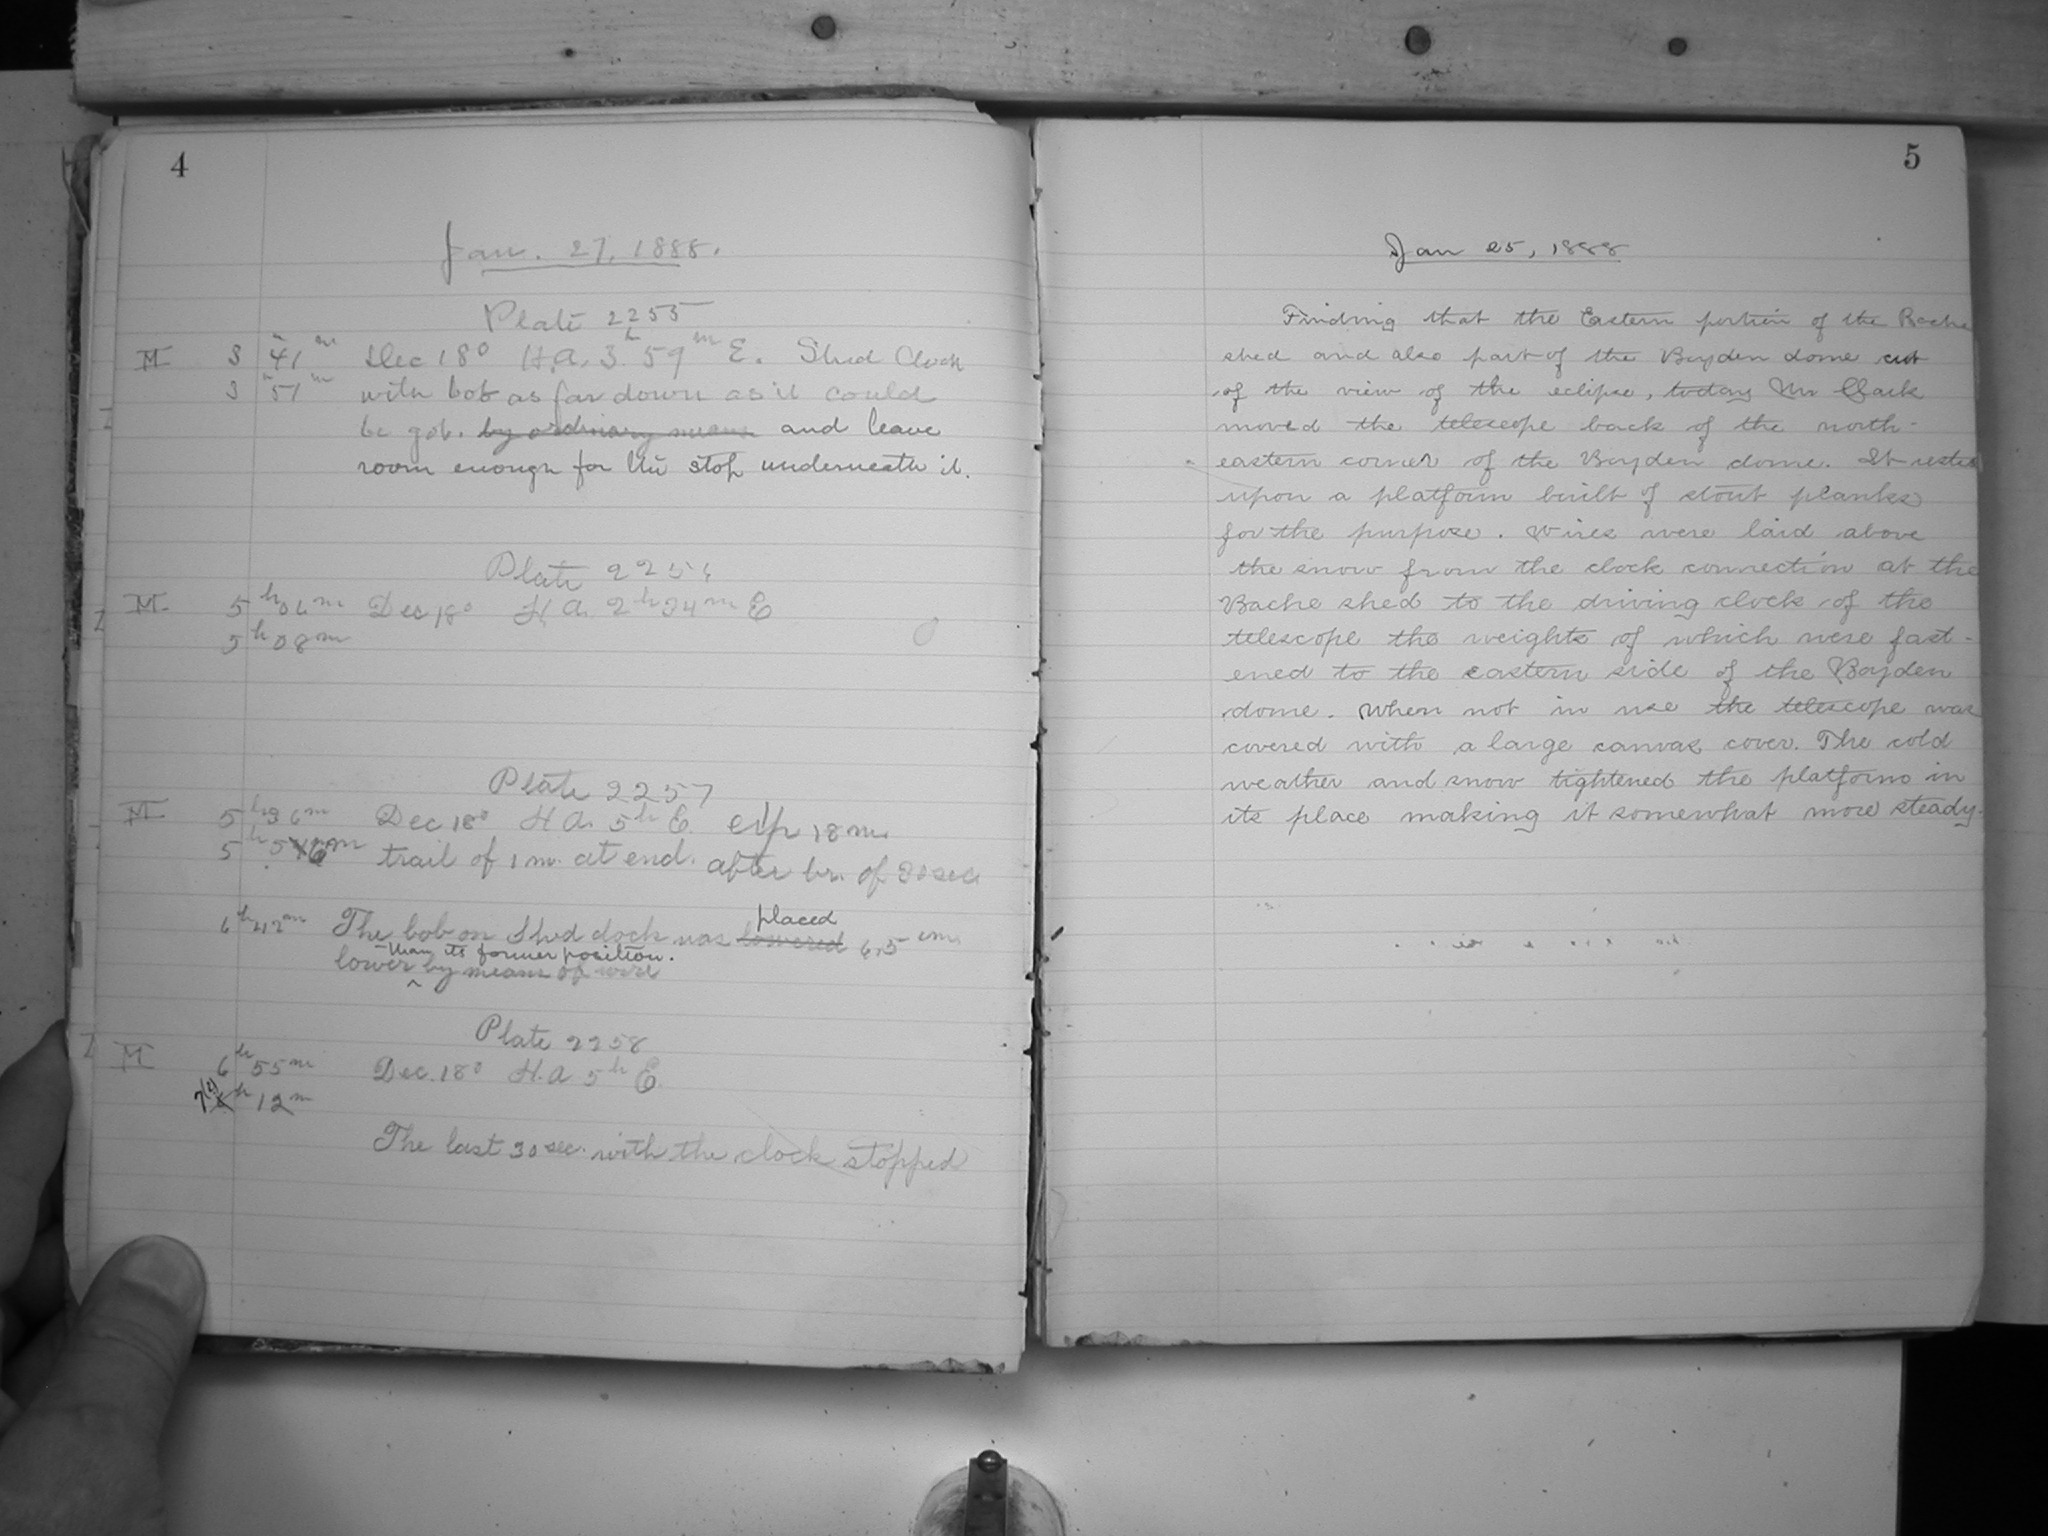 4
Jan. 27, 1888.
Plate 2255
M 3 41 m Dec 18° H.A. 3 h 59 m E. Shed Clock
3 51 m with bob as far down as it could
be got. by ordinary means and leave
room enough for the stop underneath it.
Plate 225
M. 5 h 06 m Dec 18° H.A. 2 h 24 m E
5 h 08 m
Plate 2257
M 5 h 36 m Dec 18° H.A. 5 h E. exp 18 m.
5 h 5 m trail of 1 m. at end. after br. of 30 sec
6 h 42 m The bob on Shed clock was lowered placed 6.5 cm.
lower than its former position. by means of wire
Plate 2258
M 6 h 55 m Dec. 18° H.A. 5 h E.
7(?) 6 h 12 m
The last 30 sec. with the clock stopped
5
Jan 25, 1888
Finding that the Eastern portion of the Bache
shed and also part of the Boyden dome cut
of the view of the eclipse, today Mr Clark
moved the telescope back of the north-
eastern corner of the Boyden dome. It rested
upon a platform built of stout planks
for the purpose. Wires were laid above
the snow from the clock connection at the
Bache shed to the driving clock of the
telescope the weights of which were fast-
ened to the eastern side of the Boyden
dome. When not in use the telescope was
covered with a large canvas cover. The cold
weather and snow tightened the platform in
its place making it somewhat more steady.